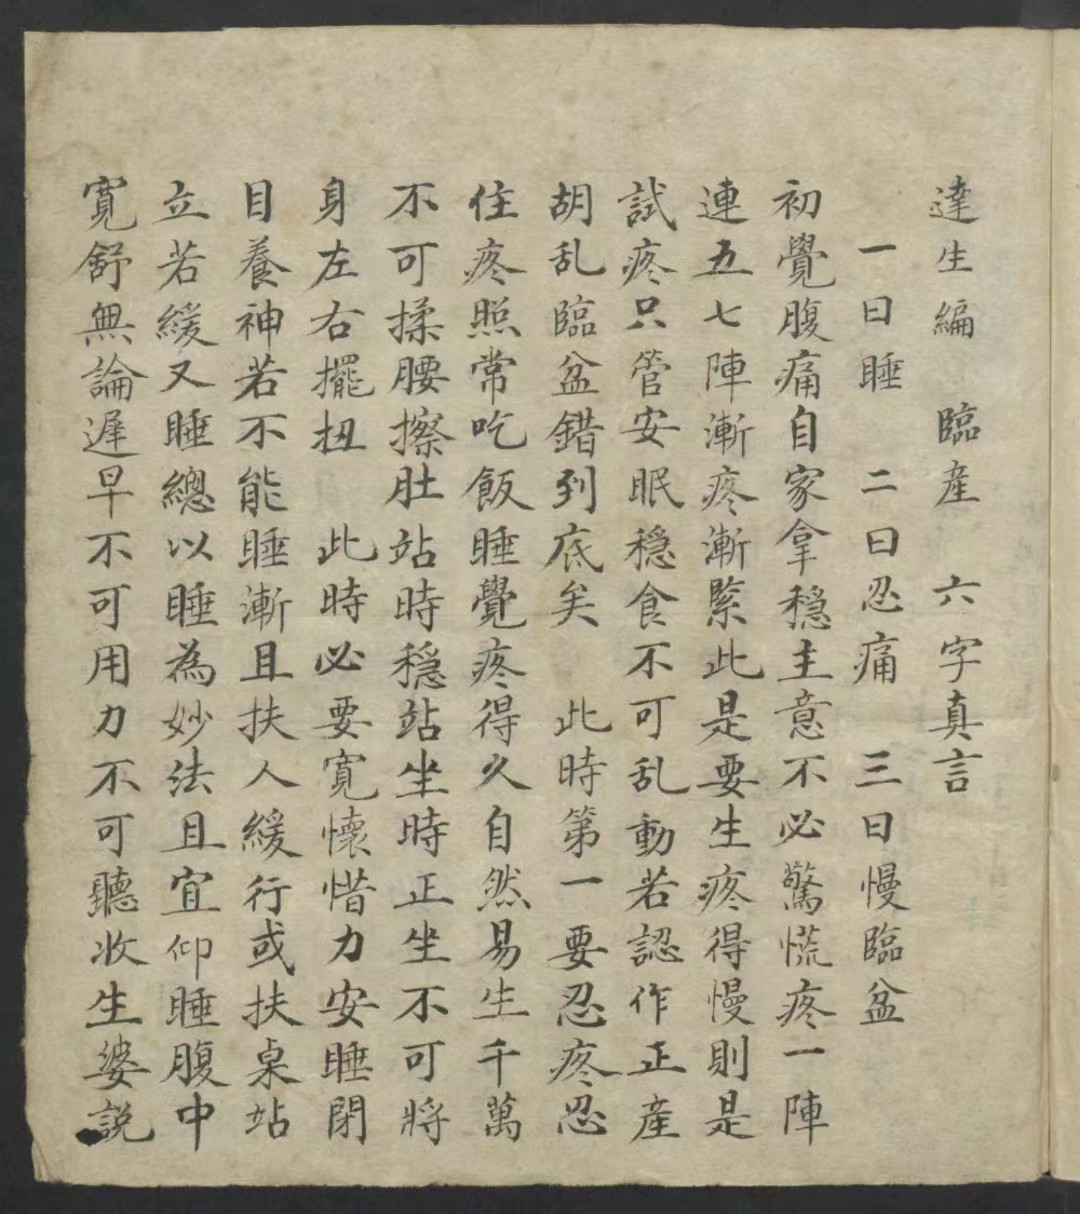 達生編 臨産 六字真言
一曰睡 二曰忍痛 三曰慢臨盆
初覺腹痛自家拿穩主意不必驚慌疼一陣
連五七陣漸疼漸緊此是要生疼得慢則是
試疼只管安眠穩食不可乱動若認作正産
胡乱臨盆錯到底矣 此時第一要忍疼忍
住疼照常吃飯睡覺疼得久自然易生千萬
不可揉腰擦肚站時穩站坐時正坐不可將
身左右擺扭 此時必要寛懷惜力安睡閉
目養神若不能睡漸且扶人緩行或扶桌站
立若緩又睡總以睡為妙法且宜仰睡腹中
寛舒無論遲早不可用力不可聽收生婆説